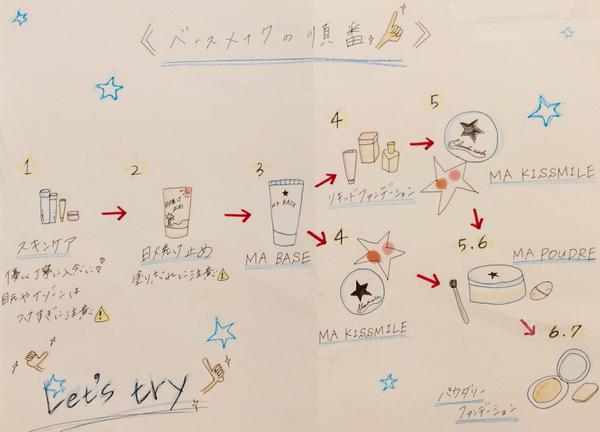 《 ベースメイクの順番 》
1
スキンケア
優しく丁寧に入念に
目元やTゾーンは
つけすぎに注意
2
日焼け止め
日焼け止め
塗りムラに注意
3
MA BASE
MA BASE
4
リキッドファンデーション
5
MA KISSMILE
4
MA KISSMILE
5.6
MA POUDRE
6.7
パウダリー
ファンデーション
Let's try